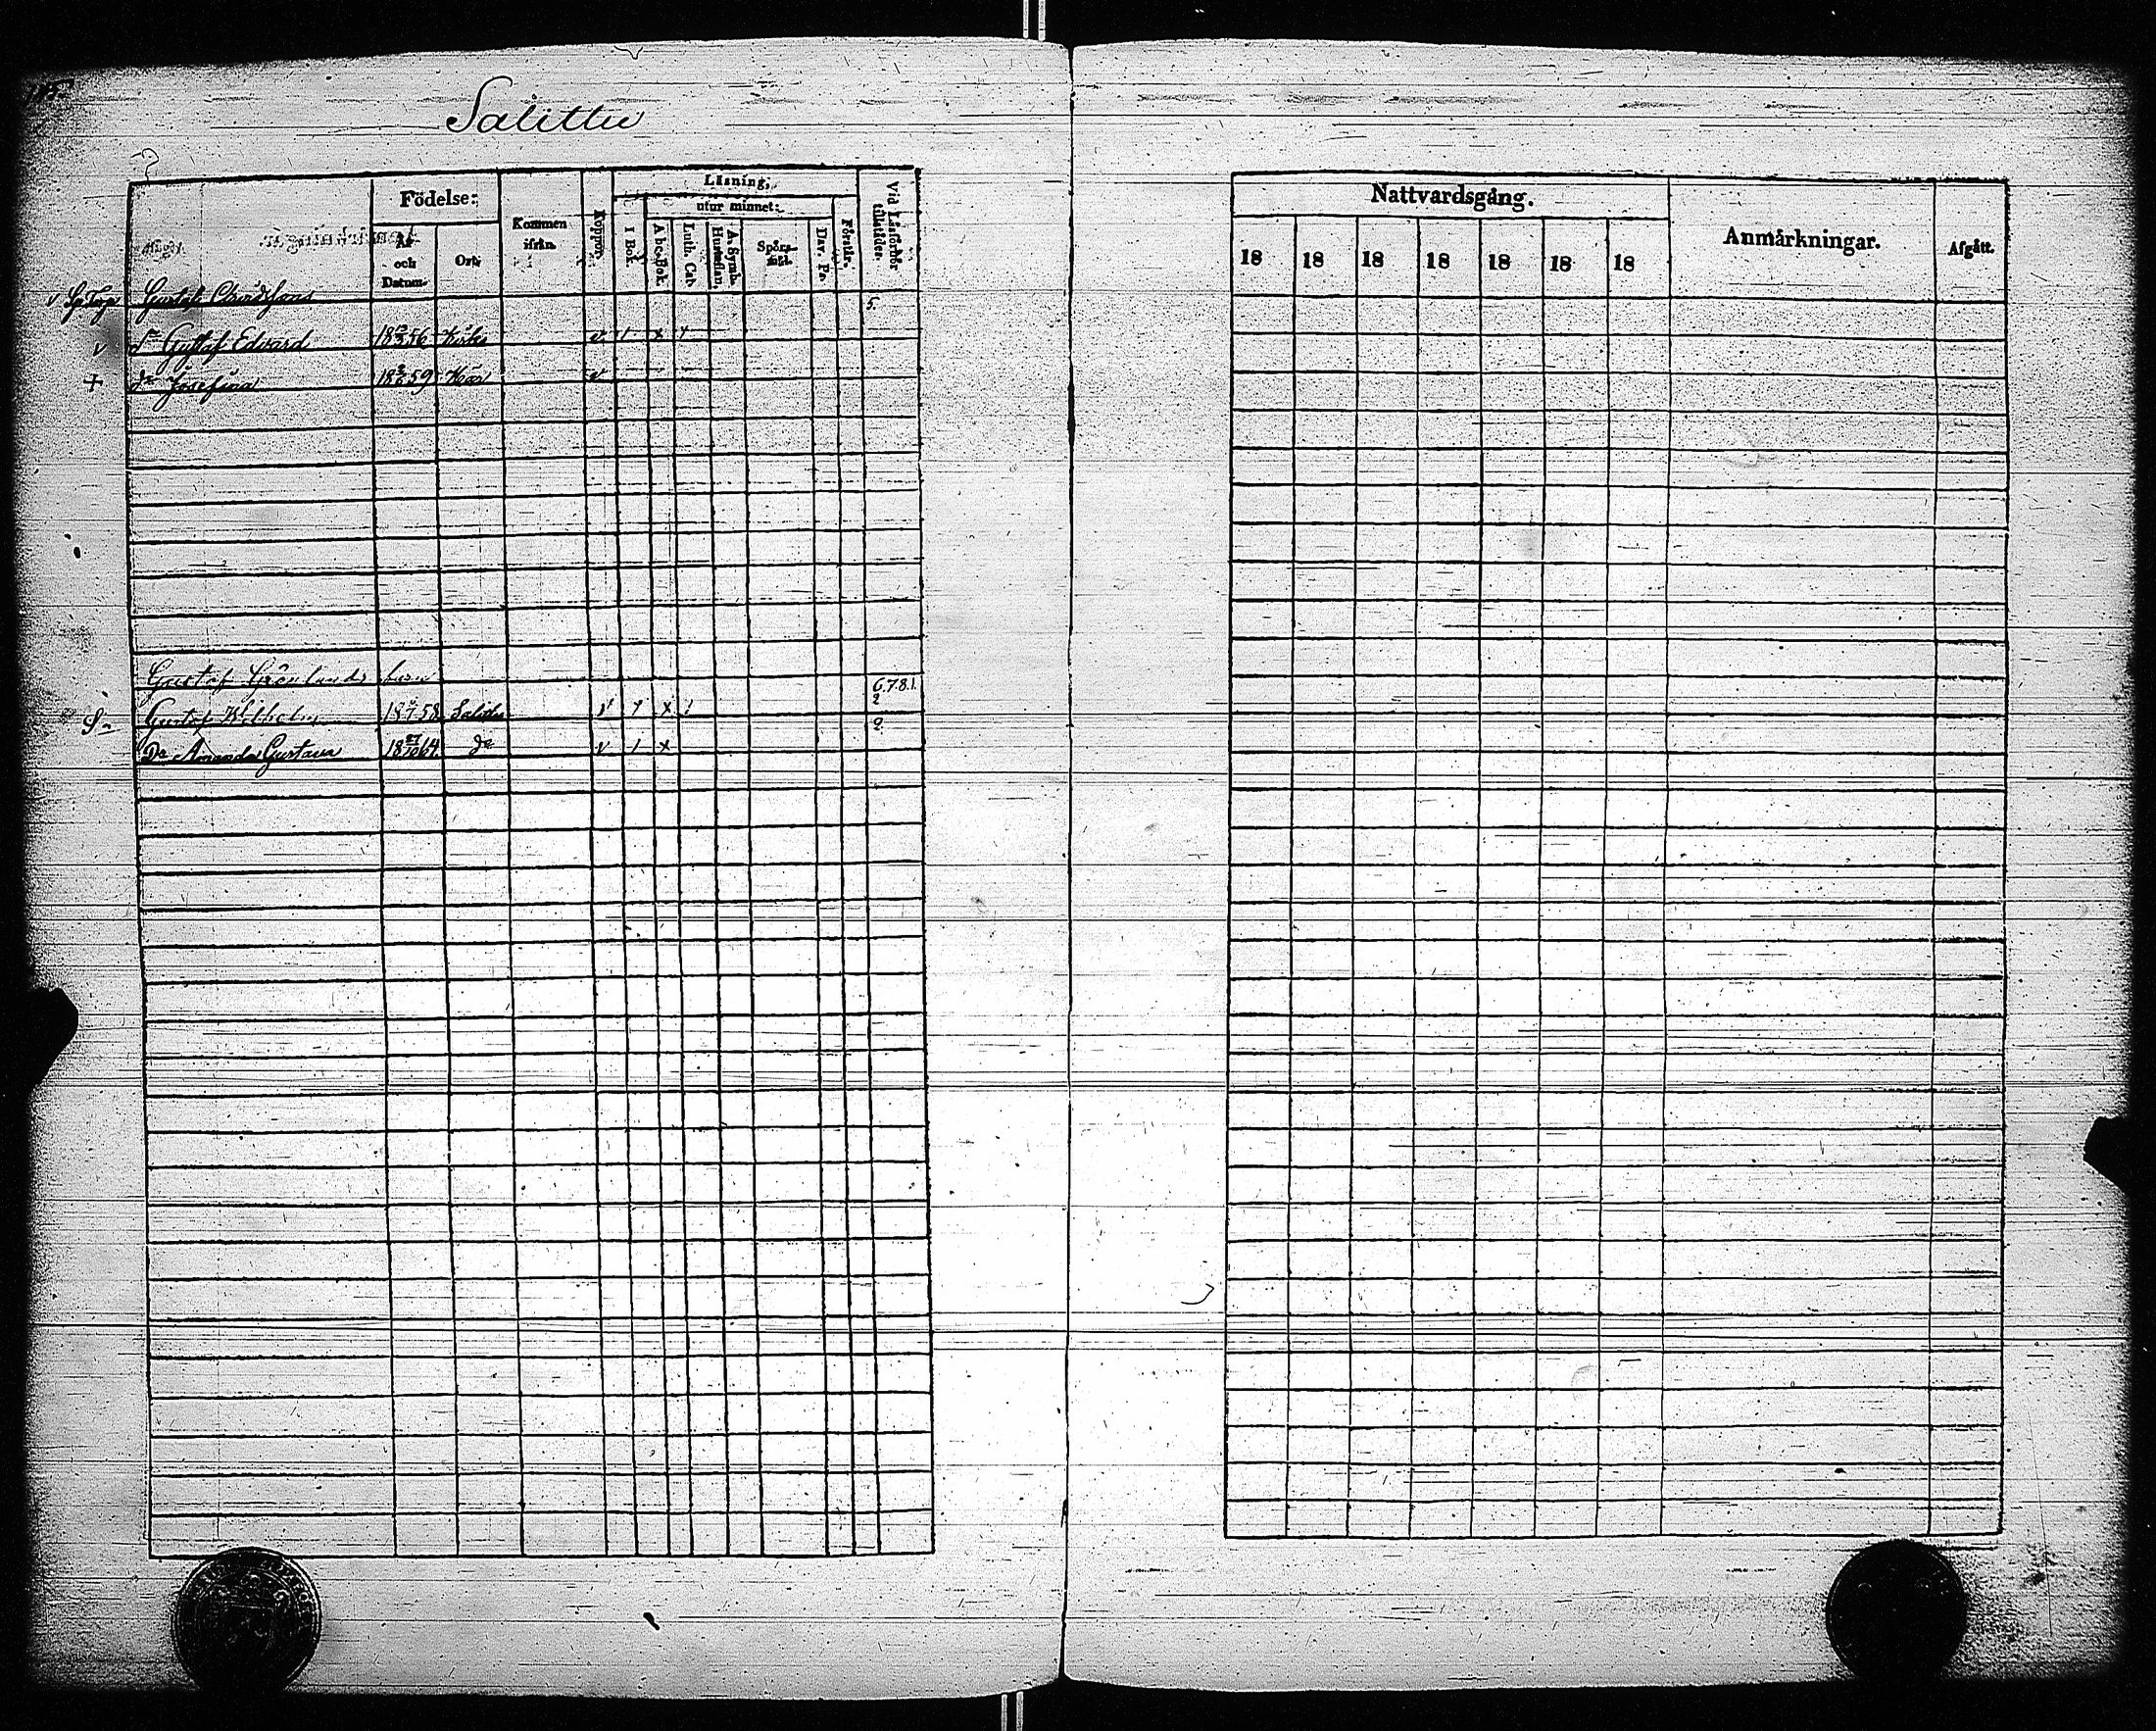 Salittu
Födelse:
Kommen ifrån.
Koppor.
Läsning,
utur minnet:
I Bok.
Abc-Bok.
Luth. Cat.
A. Symb. Hustaflan.
Spörsmål.
Dav. Ps.
Förstår.
Vid Läsförhör tillstädes:
År och Datum.
Ort.
Nattvardsgång.
Anmärkningar.
Afgått.
18 18 18 18 18 18 18
Gustaf 5.
Sn Gustaf Edvard 18 56 v 1 x 1
+ Dr Josefina 18 59 v
Gustaf Grönlunds barn 6.7.8.1.
2
Sn Gustaf Wilhelm 18 58 Salittu v 1 x 1 2
Dr Amanda Gustava 18 27/10 64 do v 1 x